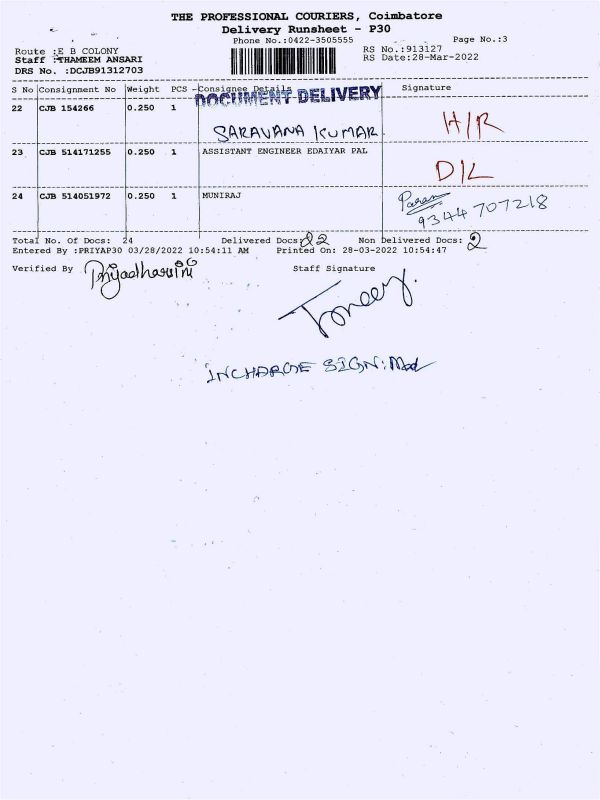 THE PROFESSIONAL COURIERS, Coimbatore
Delivery Runsheet - P30
Phone No.:0422-3505555 Page No.:3
Route :E B COLONY RS No.:913127
Staff :THAMEEM ANSARI RS Date:28-Mar-2022
DRS No. :DCJB91312703
S No Consignment No Weight PCS Consignee Details Signature
DOCUMENT DELIVERY
22 CJB 154266 0.250 1 SARAVANA KUMAR H/R
23 CJB 514171255 0.250 1 ASSISTANT ENGINEER EDAIYAR PAL D/L
24 CJB 514051972 0.250 1 MUNIRAJ
9344707218
Total No. Of Docs: 24 Delivered Docs: 22 Non Delivered Docs: 2
Entered By :PRIYAP30 03/28/2022 10:54:11 AM Printed On: 28-03-2022 10:54:47
Verified By Priyadharsini Staff Signature
INCHARGE SIGN: